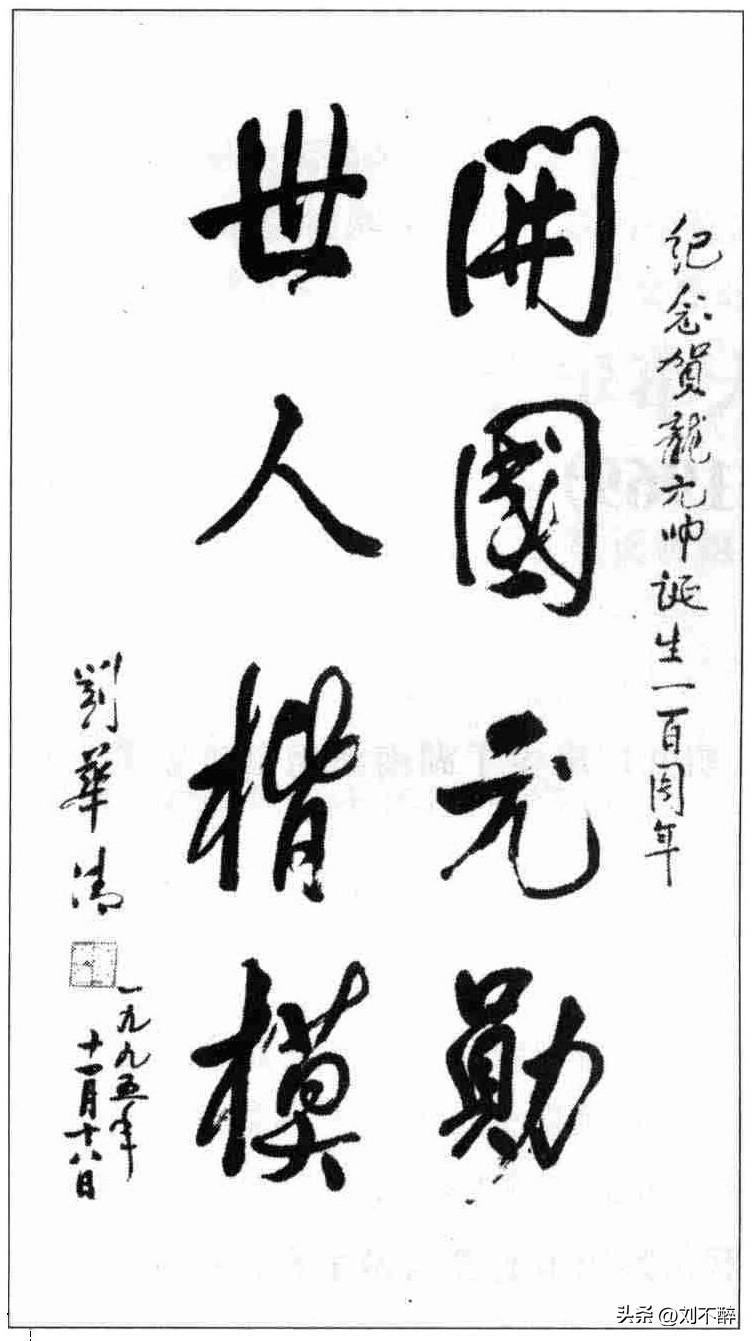 纪念賀龍元帅诞生一百周年
開國元勛
世人楷模
劉華清
一九九五年
十一月十八日
头条 @刘不醉